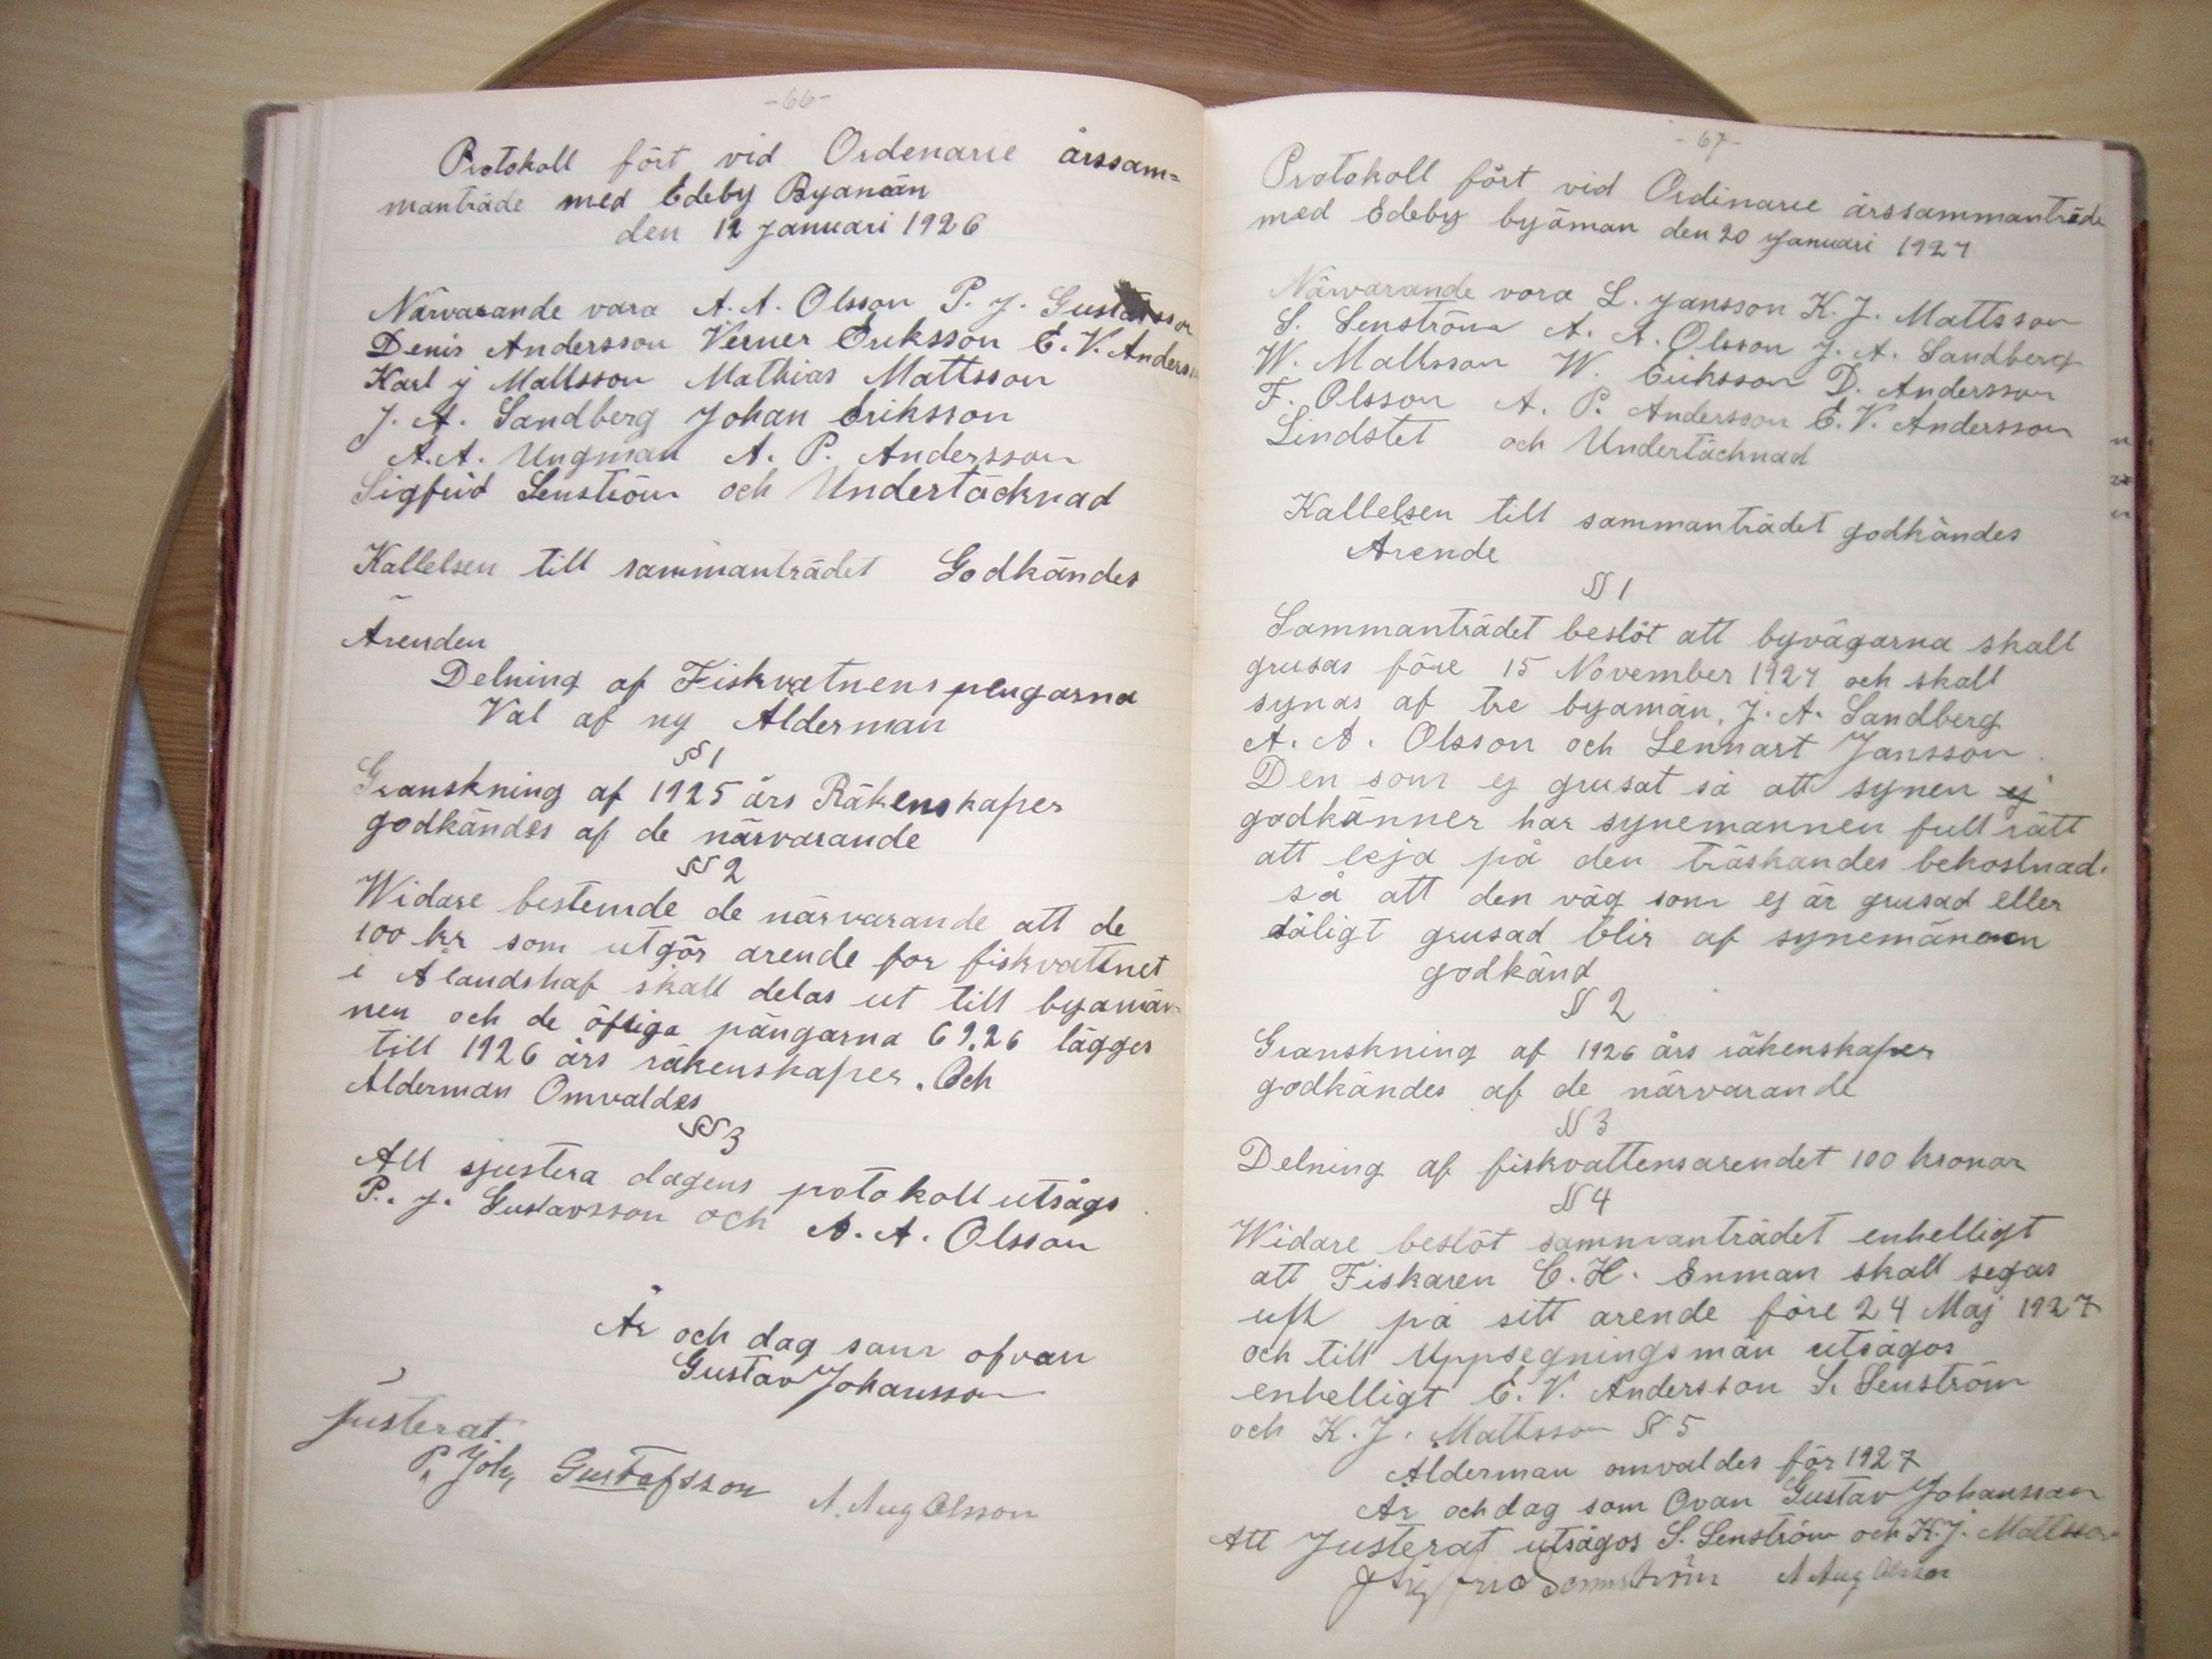 -66-
Protokoll fört vid Ordenarie årssam=
manträde med Edeby Byamän
den 12 Januari 1926
Närvarande vara A. A. Olsson P. J. Gustafsson
Denis Andersson Verner Eriksson E. V. Anders
Karl J Mattsson Mathias Mattsson
J. A. Sandberg Johan Eriksson
A. A. Ungman A. P. Andersson
Sigfrid Senström och Undertäcknad
Kallelsen till sammanträdet Godkändes
Ärenden
Delning af Fiskvatnens pengarna
Val af ny Ålderman
§§ 1
Granskning af 1925 års Räkenskaper
godkändes af de närvarande
§§ 2
Widare bestemde de närvarande att de
100 kr som utgör arende for fiskvattnet
i Ålandshaf skall delas ut till byamän-
nen och de öfriga pängarna 69,26 lägges
till 1926 års räkenskaper. Och
Ålderman Omvaldes
§§ 3
Att sjustera dagens potokoll utsågs
P. J. Gustavsson och A. A. Olsson
År och dag som ofvan
Gustav Johansson
Justerat.
P. Joh, Gustafsson A. Aug Olsson
-67-
Protokoll fört vid Ordinarie årssammanträde
med Edeby byäman den 20 Januari 1927
Närvarande vora L. Jansson K. J. Mattsson
S. Senström A. A. Olsson J. A. Sandberg
W. Mattsson W. Eriksson D. Andersson
F. Olsson A. P. Andersson E. V. Andersson
Lindstet och Undertäcknad
Kallelsen till sammanträdet godkändes
Ärende
§§ 1
Sammanträdet beslöt att byvägarna skall
grusas före 15 November 1927 och skall
synas af tre byamän, J. A. Sandberg
A. A. Olsson och Lennart Jansson.
Den som ej grusat så att synen ej
godkänner har synemannen full rätt
att leja på den träskandes bekostnad.
så att den väg som ej är grusad eller
dåligt grusad blir af synemännen
godkänd
§§ 2
Granskning af 1926 års räkenskaper
godkändes af de närvarande
§§ 3
Delning af fiskvattensarendet 100 kronor
§§ 4
Widare beslöt sammanträdet enhelligt
att Fiskaren C. H. Enman skall segas
uft på sitt arende före 24 Maj 1927
och till Uppsegningsmän utsågos
enhelligt E. V. Andersson S. Senström
och K. J. Mattsson §§ 5
Ålderman omvaldes för 1927
År och dag som Ovan Gustav Johansson
Att Justerat utsågos S. Senström och K. J. Mattsson
Sigfrid Sennström A Aug Olsson